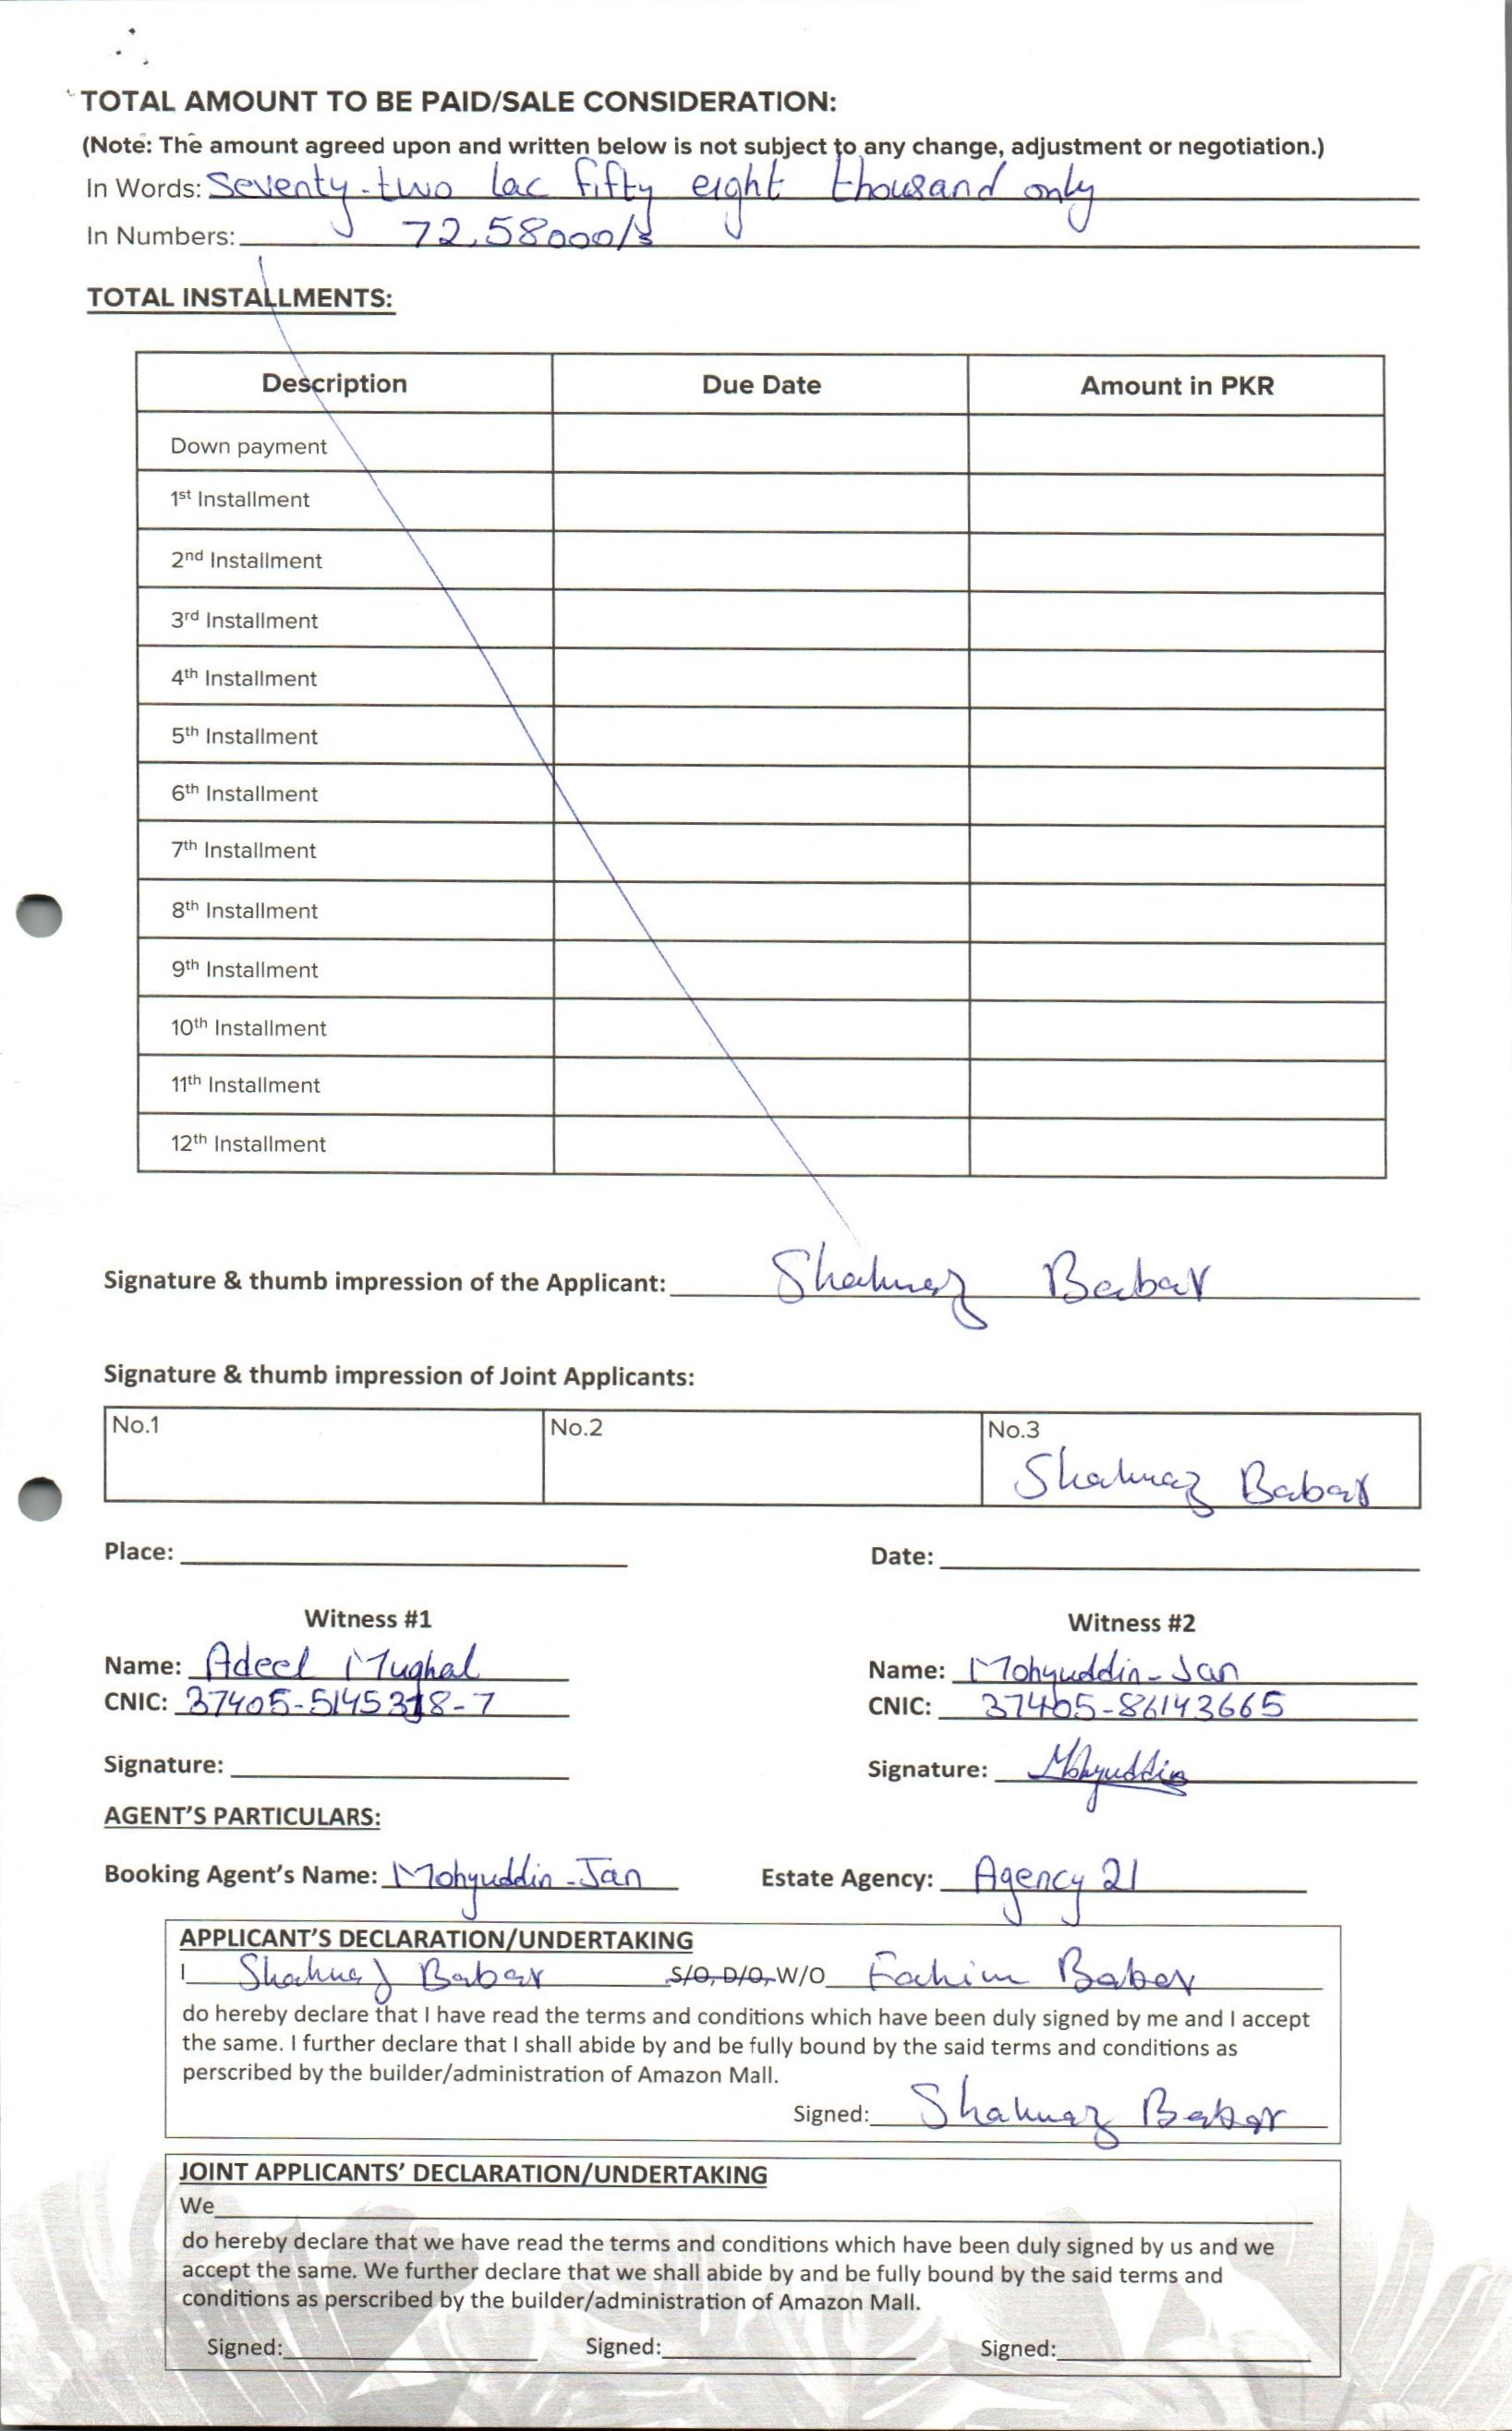 TOTAL AMOUNT TO BE PAID/SALE CONSIDERATION:
(Note: The amount agreed upon and written below is not subject to any change, adjustment or negotiation.)
In Words: Seventy-two lac fifty eight thousand only
In Numbers: 72,58000/
TOTAL INSTALLMENTS:
Description Due Date Amount in PKR
Down payment
1st Installment
2nd Installment
3rd Installment
4th Installment
5th Installment
6th Installment
7th Installment
8th Installment
9th Installment
10th Installment
11th Installment
12th Installment
Signature & thumb impression of the Applicant: Shahnaz Babar
Signature & thumb impression of Joint Applicants:
No.1 No.2 No.3
Shahnaz Babar
Place: Date:
Witness #1 Witness #2
Name: Adeel Mughal Name: Mohyuddin-Jan
CNIC: 37405-5145318-7 CNIC: 37405-86143665
Signature: Signature: Mohyuddin
AGENT'S PARTICULARS:
Booking Agent's Name: Mohyuddin-Jan Estate Agency: Agency 21
APPLICANT'S DECLARATION/UNDERTAKING
I Shahnaz Babar S/O, D/O, W/O Fahim Babar
do hereby declare that I have read the terms and conditions which have been duly signed by me and I accept
the same. I further declare that I shall abide by and be fully bound by the said terms and conditions as
perscribed by the builder/administration of Amazon Mall.
Signed: Shahnaz Babar
JOINT APPLICANTS' DECLARATION/UNDERTAKING
We
do hereby declare that we have read the terms and conditions which have been duly signed by us and we
accept the same. We further declare that we shall abide by and be fully bound by the said terms and
conditions as perscribed by the builder/administration of Amazon Mall.
Signed: Signed: Signed: